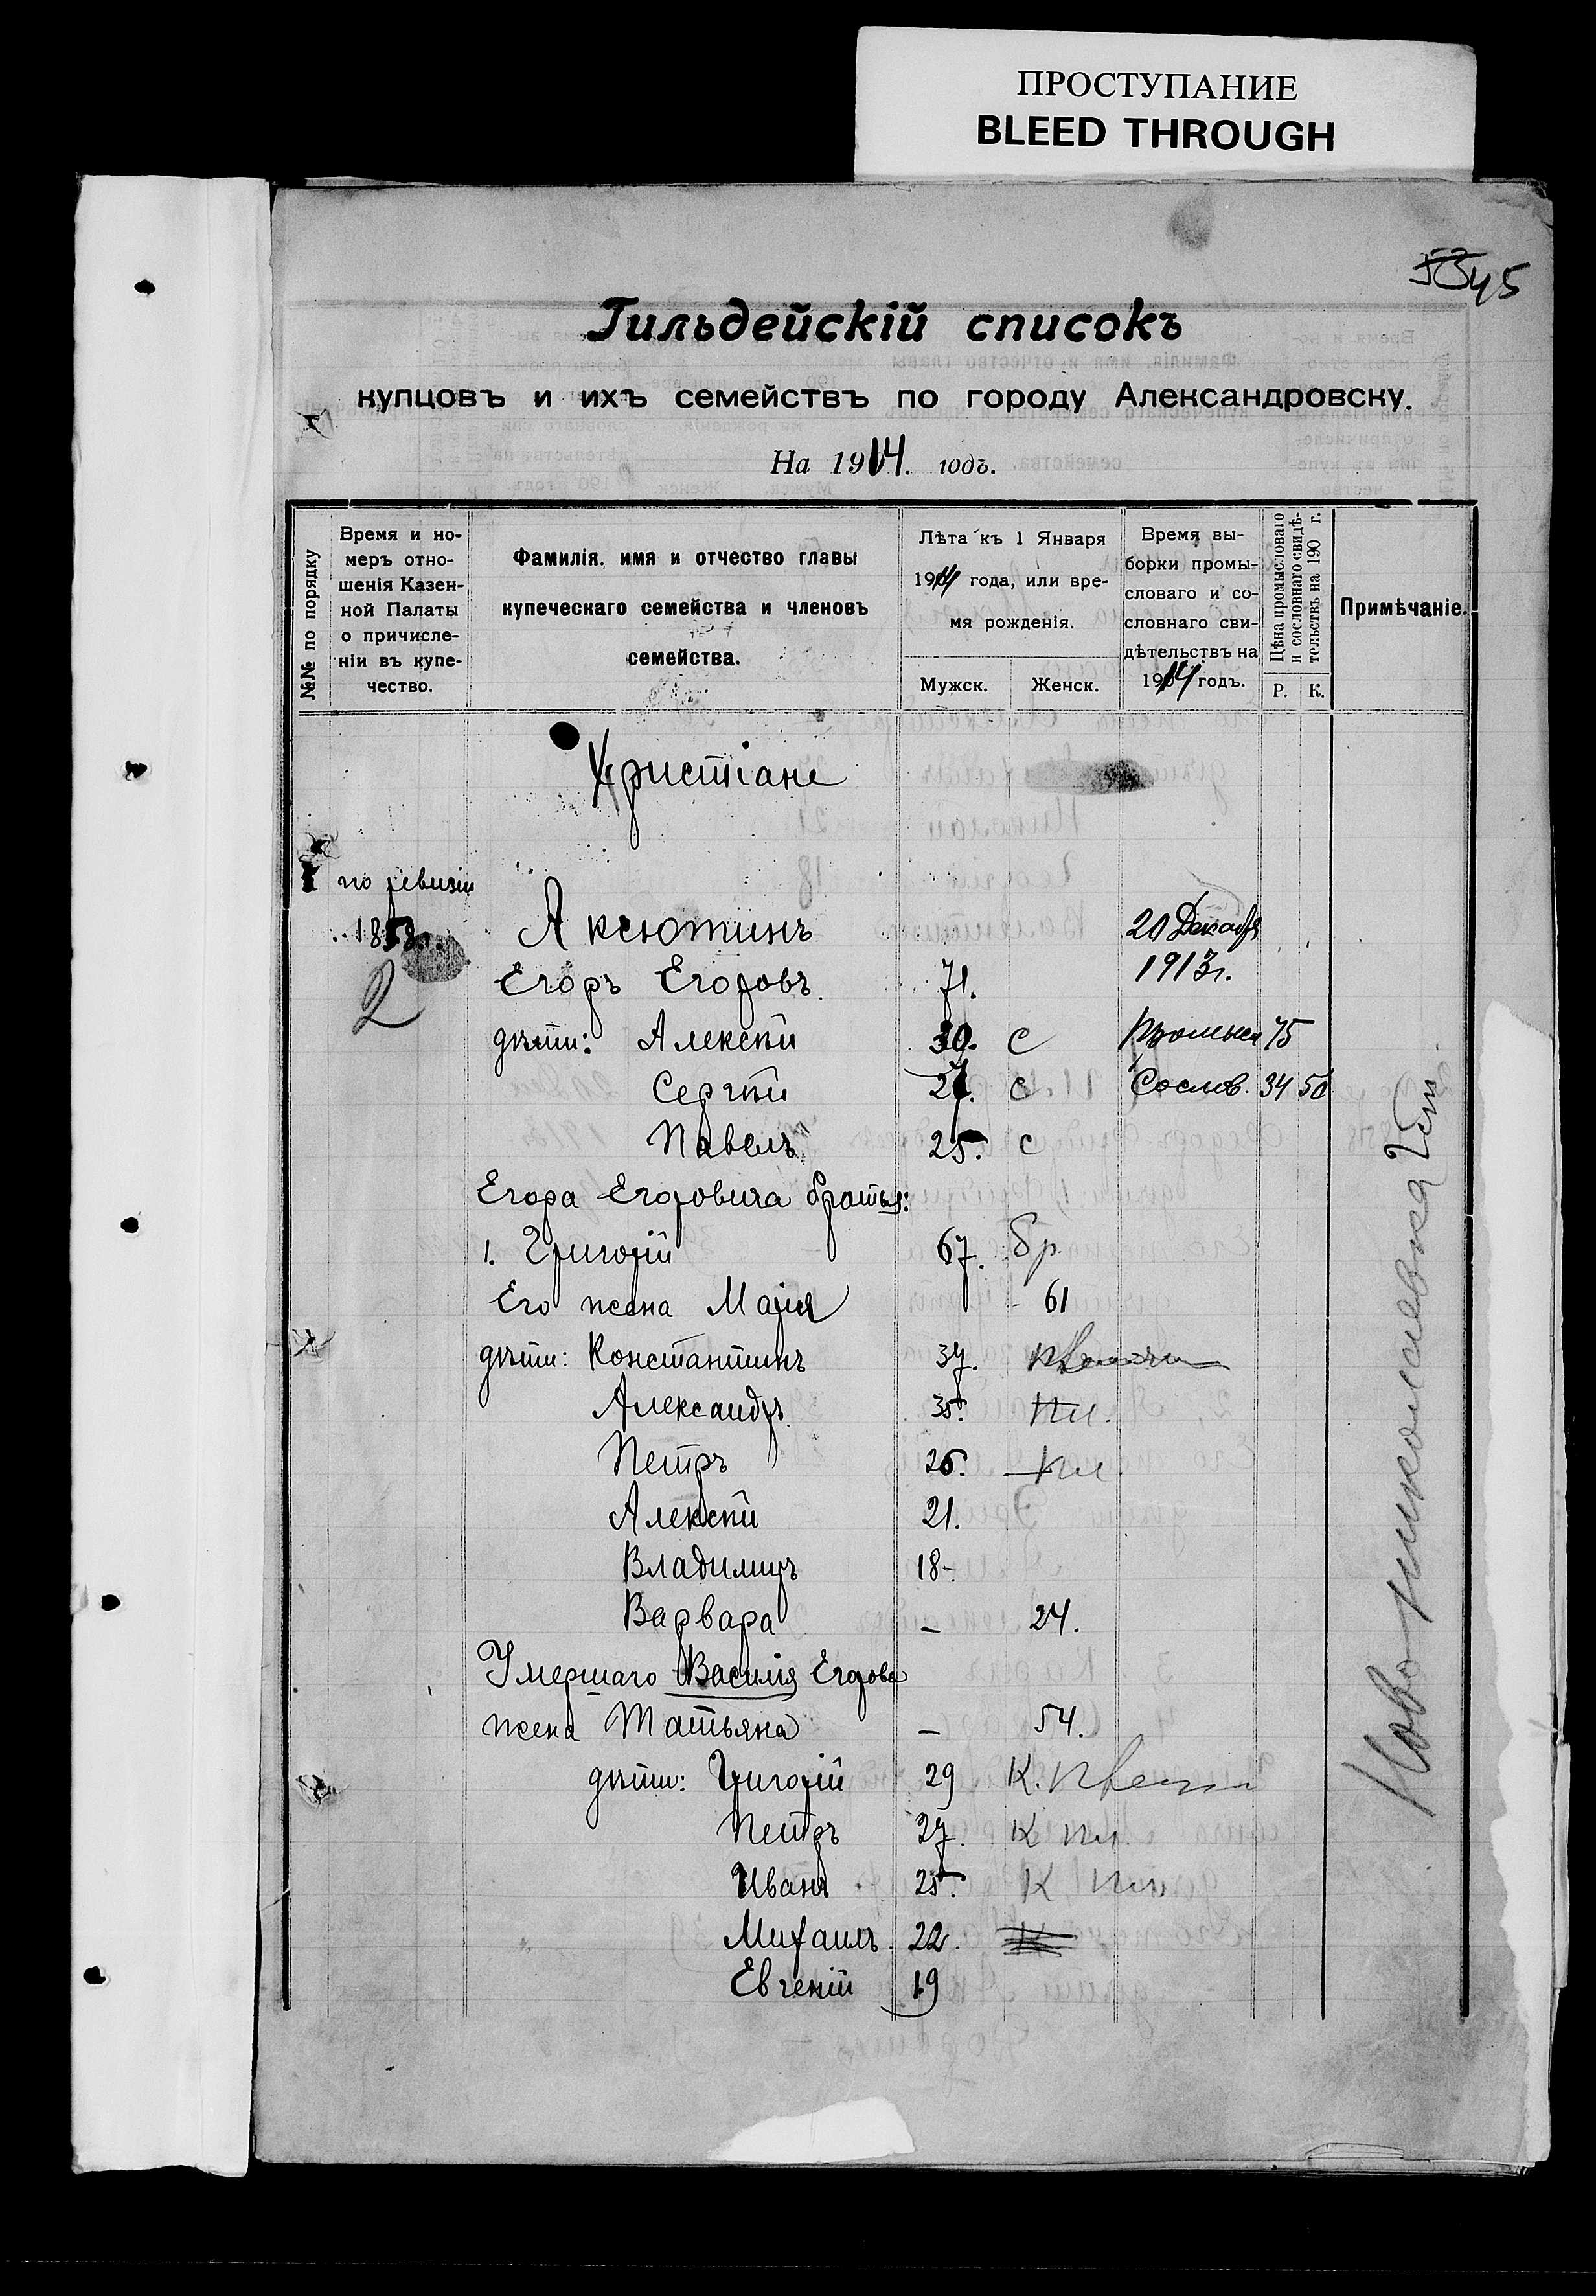 ПРОСТУПАНИЕ
BLEED THROUGH
45
Гильдейскій списокъ
купцовъ и ихъ семействъ по городу Александровску.
На 1914. годъ.
№№ по порядку
Время и но-
меръ отно-
шенія Казен-
ной Палаты
о причисле-
ніи въ купе-
чество.
Фамилія. имя и отчество главы
купеческаго семейства и членовъ
семейства.
Лѣта къ 1 Января
1914 года, или вре-
мя рожденія.
Мужск. Женск.
Время вы-
борки промы-
словаго и со-
словнаго сви-
дѣтельствъ на
1914 годъ.
Цѣна промысловаго
и сословнаго свидѣ-
тельствъ на 190 г.
Р. К.
Примѣчаніе.
Христіане
1 по ревизіи
1858 г. Аксютинъ 20 Декабря
2 Егоръ Егоровъ 71. 1913 г.
дѣти: Алексѣй 30. с Промысл 75
Сергѣй 27. с Сослов. 34 50
Павелъ 25. с
Егора Егоровича братья:
1. Григорій 67. бр
Его жена Марія - 61
дѣти: Константинъ 37.
Александръ 35.
Петръ 26.
Алексѣй 21.
Владиміръ 18-
Варвара - 24.
Умершаго Василія Егорова
жена Татьяна - 54.
дѣти: Григорій 29 К.
Петръ 27. К
Иванъ 25. К
Михаилъ 22.
Евгеній 19
Ново-николаевка